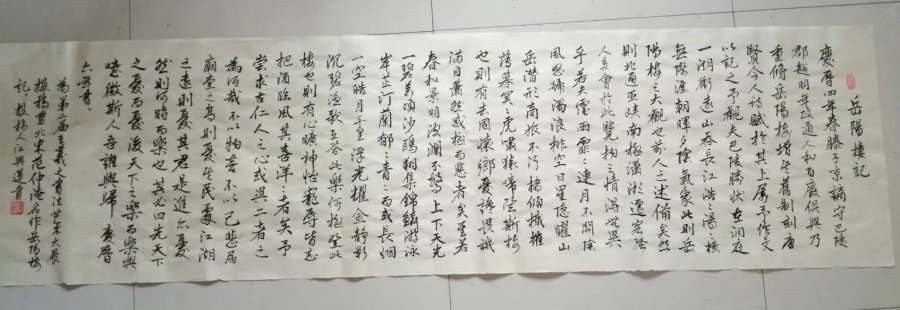 岳陽樓記
慶曆四年春滕子京謫守巴陵
郡越明年政通人和百廢俱興乃
重修岳陽樓增其舊制刻唐
賢今人詩賦於其上屬予作文
以記之予觀夫巴陵勝狀在洞庭
一湖銜遠山吞長江浩々湯々橫
無際涯朝暉夕陰氣象此則岳
陽樓之大觀也前人之述備矣然
則北通巫峽南極瀟湘遷客騷
人多會於此覽物之情得無異
乎若夫霪雨霏々連月不開陰
風怒號濁浪排空日星隱曜山
岳潛形商旅不行檣傾楫摧
薄暮冥々虎嘯猿啼登斯樓
也則有去國懷鄉憂讒畏譏
滿目蕭然感極而悲者矣至若
春和景明波瀾不驚上下天光
一碧萬頃沙鷗翔集錦鱗游泳
岸芷汀蘭郁々青々而或長烟
一空皓月千里浮光耀金靜影
沉璧漁歌互答此樂何極登此
樓也則有心曠神怡寵辱皆忘
把酒臨風其喜洋々者矣予
嘗求古仁人之心或異二者之
為何哉不以物喜不以己悲居
廟堂之高則憂其民處江湖
之遠則憂其君是進亦憂
然則何時而樂也其必曰先天下
之憂而憂後天下之樂而樂與
噫微斯人吾誰與歸 慶曆
六年書
為第二屆王羲之書法艺术大展
投稿書北宋范仲淹名作岳陽樓
記 投稿人江興